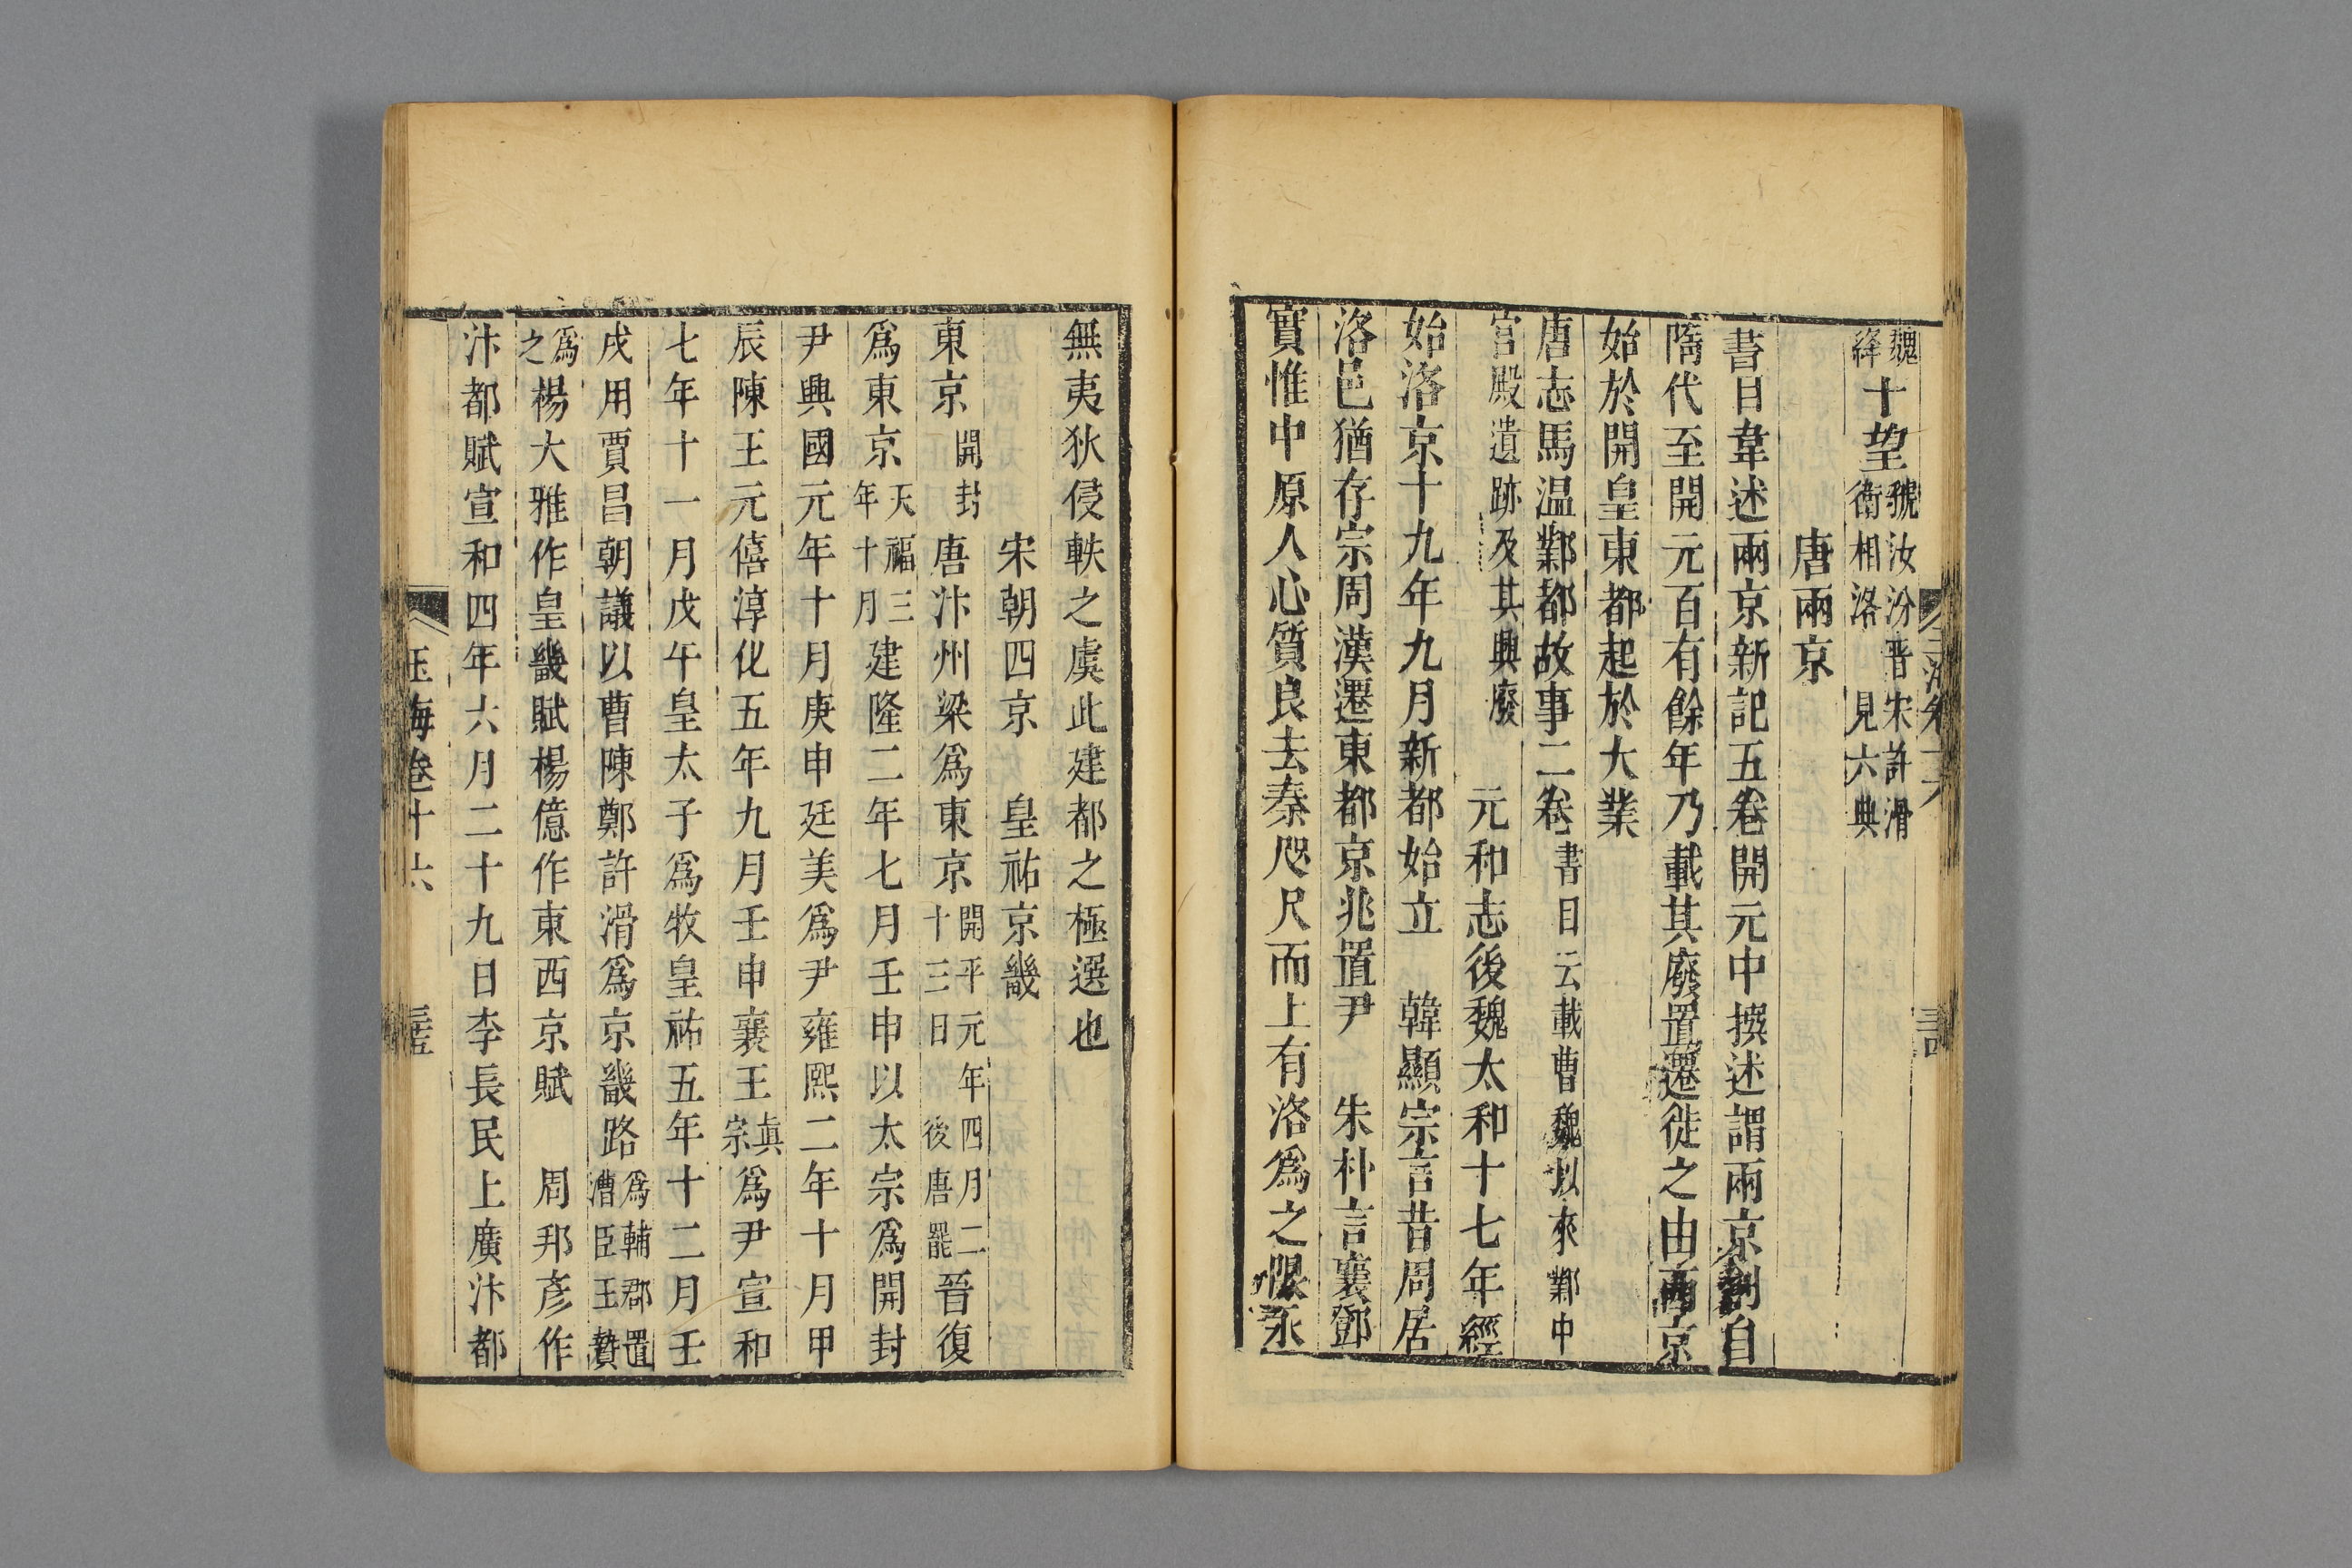 魏絳十望虢汝汾晉宋許滑衛相洛 見六典
唐兩京
書目韋述兩京新記五卷開元中撰述謂兩京創自
隋代至開元百有餘年乃載其廢置遷徙之由兩京
始於開皇東都起於大業
唐志馬温鄴都故事二卷書目云載曹魏以來鄴中
宮殿遺跡及其興廢 元和志後魏太和十七年經
始洛京十九年九月新都始立 韓顯宗言昔周居
洛邑猶存宗周漢遷東都京兆置尹 朱朴言襄鄧
實惟中原人心質良去秦咫尺而上有洛爲之限永
無夷狄侵軼之虞此建都之極選也
宋朝四京 皇祐京畿
東京開封唐汴州梁爲東京開平元年四月二十三日 後唐罷晉復
爲東京天福三年十月建隆二年七月壬申以太宗爲開封
尹興國元年十月庚申廷美爲尹雍熙二年十月甲
辰陳王元僖淳化五年九月壬申襄王真宗爲尹宣和
七年十一月戊午皇太子爲牧皇祐五年十二月壬
戌用賈昌朝議以曹陳鄭許滑爲京畿路爲輔郡置漕臣王贄
爲之楊大雅作皇畿賦楊億作東西京賦 周邦彥作
汴都賦宣和四年六月二十九日李長民上廣汴都
玉海卷十六